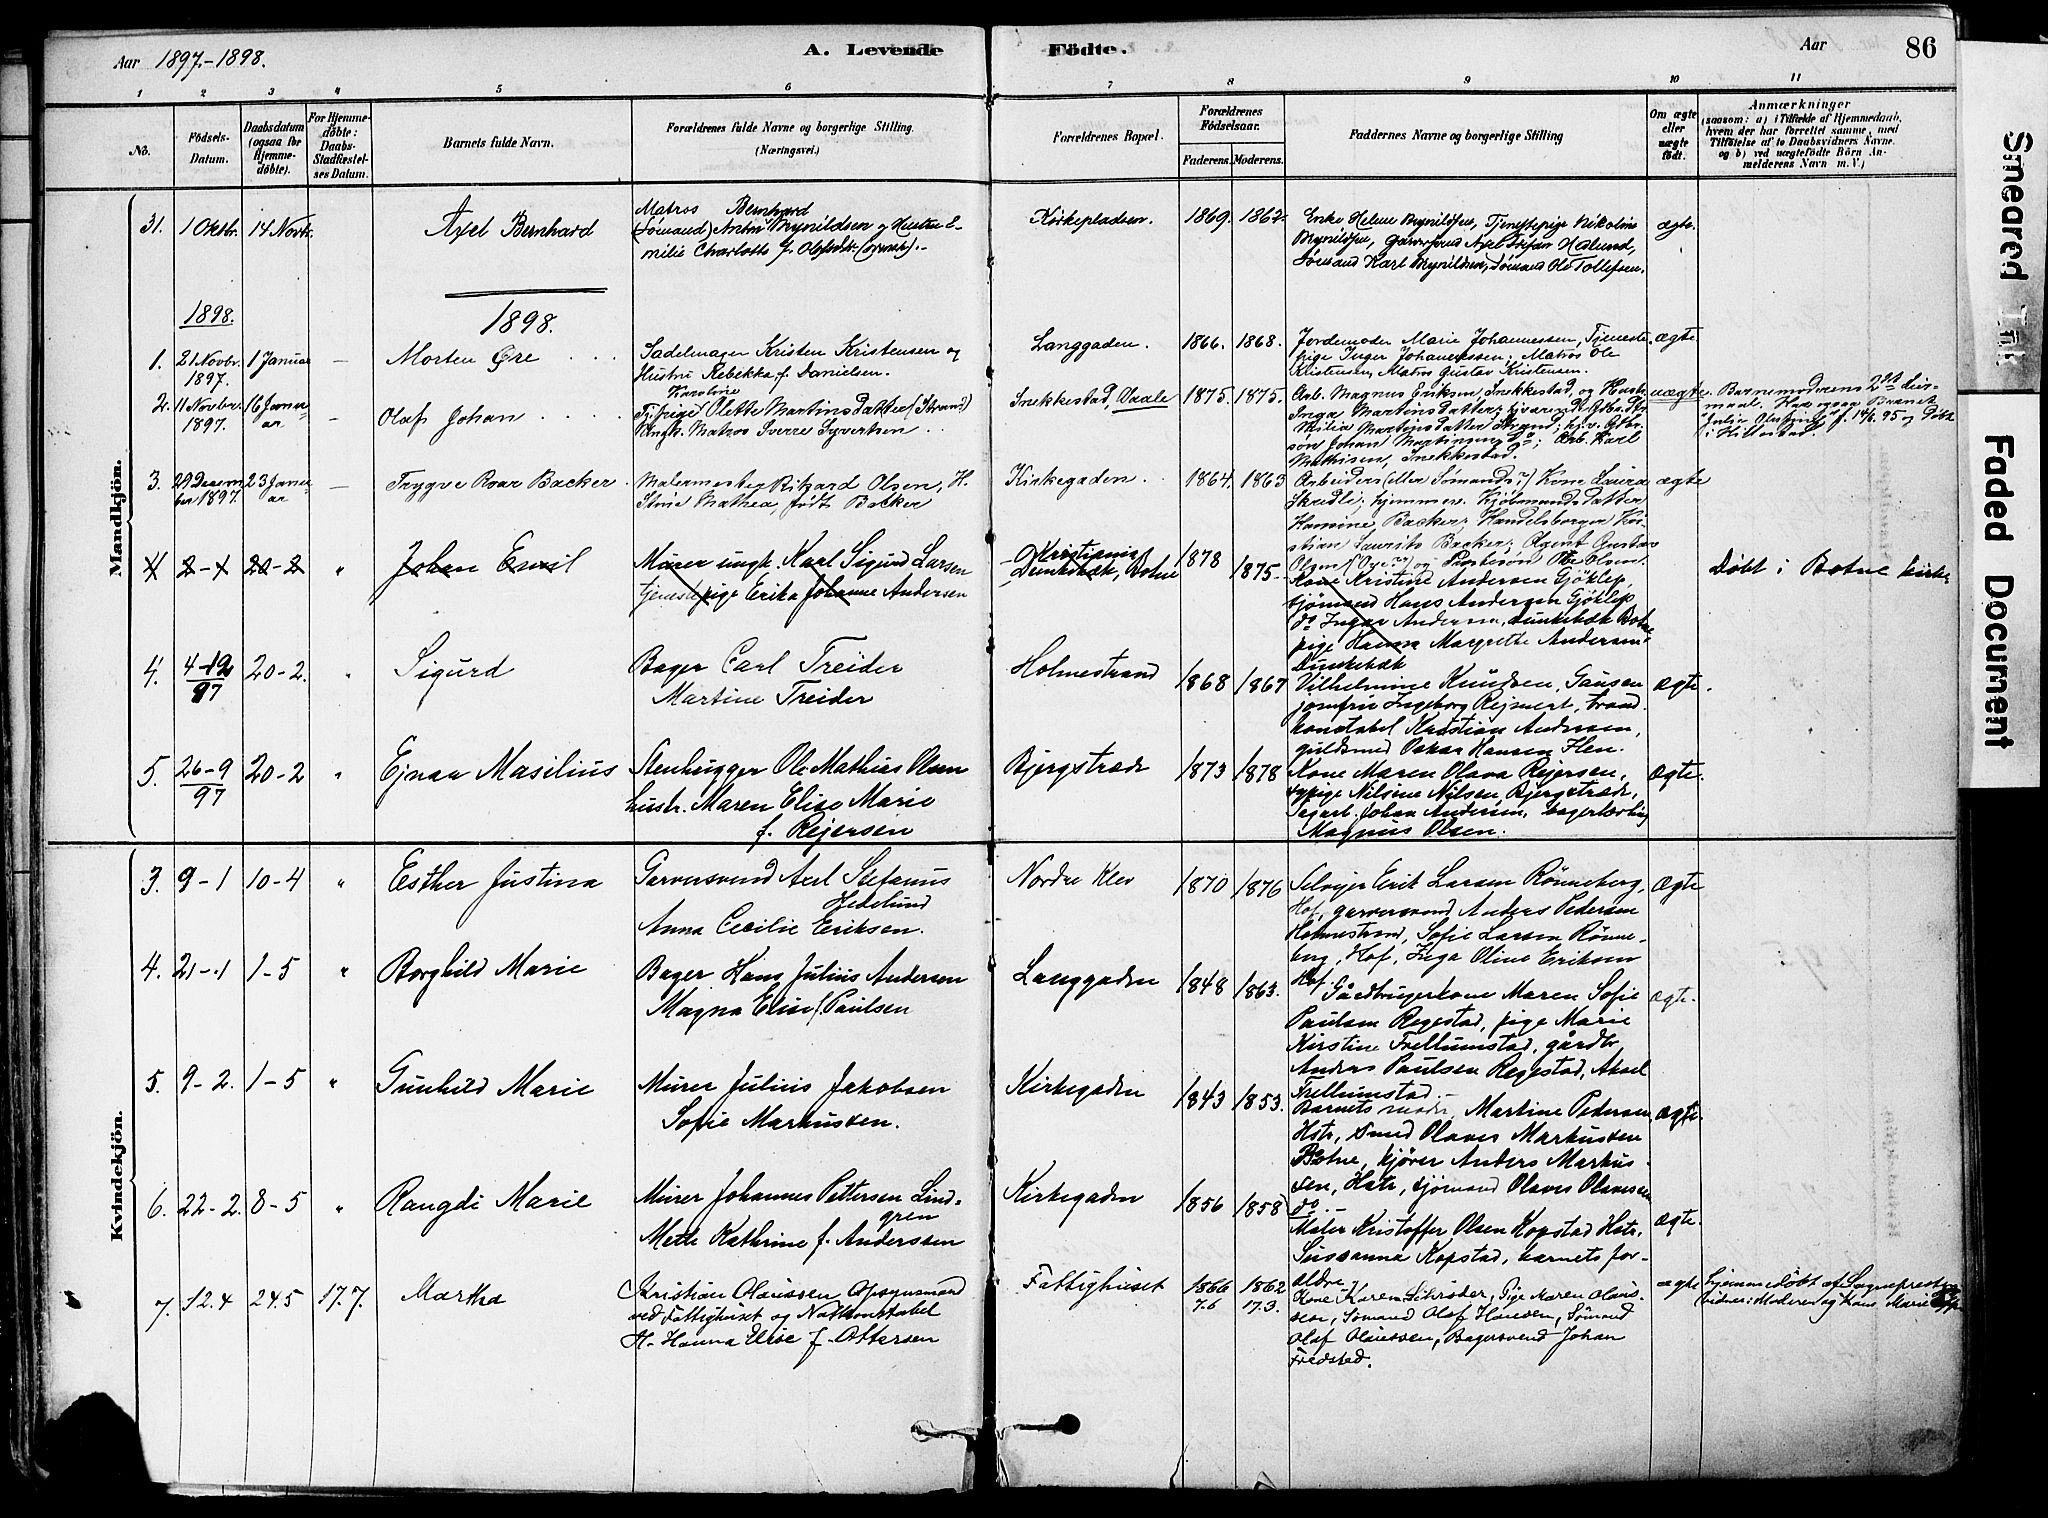 Aar 1897-1898.
A. Levende Födte.
Aar
86
1 2 3 4 5 6 7 8 9 10 11
No.
Födsels-Datum.
Daabsdatum (ogsaa for Hjemmedöbte).
For Hjemmedöbte: Daabs-Stadfæstelses Datum.
Barnets fulde Navn.
Forældrenes fulde Navne og borgerlige Stilling.
(Næringsvei.)
Forældrenes Bopæl.
Forældrenes Födselsaar.
Faderens. Moderens.
Faddernes Navne og borgerlige Stilling
Om ægte eller uægte födt.
Anmærkninger
(saasom: a) i Tilfælde af Hjemmedaab,
hvem der har forrettet samme, med
Tilföielse af to Daabsvidners Navne,
og b) ved uægtefödte Börn Anmelderens Navn m. V.)
Mandkjön.
31. 1 Oktbr. 14 Novbr. Axel Bernhard
Matros Bernhard
(Sömand) Anton Brynildsen og Hustru E-
milie Charlotte f. Olsen
Kirkepladsen. 1869. 1862.
Enke Helene Brynildsen, Tjenestepige Nikoline
Brynildsen, Garversvend Axel Stefan Hedlund,
Sömand Karl Brynildsen, Sömand Ole Tollefsen.
ægte.
1898.
1898.
1. 21 Novbr. 1897. 1 Januar — Morten Öre
Sadelmager Kristen Kristensen og
Hustru Rebekka f. Danielsen.
Langgaden. 1866. 1868.
Jordemoder Marie Johannessen, Tjeneste-
pige Inger Johannessen; Matros Ole
Kristensen, Matros Gustav Kristensen.
ægte
2. 11 Novbr. 1897. 16 Januar — Olaf Johan
Karoline
Tj.pige Olette Martinsdatter (Strand)
Ungk. Matros Sverre Syvertsen
Snekkestad, Vaale 1875. 1875.
Arb. Magnus Eriksen, Snekkestad, og Hustru
Inga Martinsdatter; hjemmev. Gbr.dtr
Milia Martinsdatter Strand; hjv. Gbr.
sön Johan Martinsen, do; Arb. Karl
Mathisen, Snekkestad.
uægte.
Barnemoderens 2det Leir-
maal. Har ogsaa Barnet
f. 14/6 95 og Döbt
i Hillestad.
3. 29 Decem-ber 1897. 23 Januar — Trygve Roar Backer
Malermester Rikard Olsen, H.
Stru Mathea, födt Backer
Kirkegaden. 1864. 1863
Arbeiders (eller Sömands?) Kone Laura
Skredli; hjemmev. Kjöbmandsdatter
Hansine Backer; Handelsborger Kri-
stian Laurits Backer; Agent Gustav
Olsen (Öye?) og Prestesön Ole Olsen.
ægte
4 2-1 20-2 " Johan Emil
Murer ungk. Karl Sigurd Larsen
tjenestepige Erika Johanne Andersen
Kristiania
Dunkebæk, Botne
1878 1875
Kone Kristine Andersen Gjöklep,
sjömand Hans Andersen Gjöklep
do Ingar Andersen, Dunkebæk Botne
pige Hanna Margrethe Andersen
Dunkebæk
Döbt i Botne kirke
4. 4-12 97 20-2. " Sigurd
Bager Carl Treider
Martine Treider
Holmestrand 1868 1867
Vilhelmine Knudsen, Gausen
jomfru Ingeborg Rejnert, brand-
konstabel Kristian Andersen,
guldsmed Oskar Hansen Flen.
ægte.
5. 26-9 97 20-2 " Ejnar Masilius
Stenhugger Ole Mathius Olsen
hustr. Maren Elise Marie
f. Rejersen
Bjergstræde 1873 1878
Kone Maren Olava Rejersen,
pige Nilsine Nilsen, Bjergstræde,
Sagarb. Johan Andersen, bagerlærling
Magnus Olsen.
ægte.
Kvindekjön.
3. 9-1 10-4 " Esther Justina
Garversvend Axel Stefanus
Hedelund
Anna Cecilie Eriksen.
Nordre Klev 1870 1876
Selvejer Erik Larsen Rönneberg,
Hof, garversvend Anders Pedersen
Holmestrand, Sofie Larsen Rönne-
berg, Hof, Inga Oline Eriksen
Hof
ægte
4. 21-1 1-5 " Borghild Marie
Bager Hans Julius Andersen
Magna Elise f. Paulsen
Langgaden 1848 1863.
Gårdbrugerkone Maren Sofie
Paulsen Regestad, pige Marie
Kirstine Frellumstad, gårdbr.
Anders Paulsen Regestad, Aksel
Frellumstad.
ægte.
5. 9-2. 1-5 " Gunhild Marie
Murer Julius Jakobsen
Sofie Markussen.
Kirkegaden 1843 1853.
Barnets moder, Martine Pedersen
Hstr, smed Olaves Markussen
Botne, kjörer Anders Markus-
sen, Hstr, sjömand Olaves Olavesen
do
ægte.
6. 22-2. 8-5 " Rangdi Marie
Murer Johannes Pettersen Lind-
gren
Mette Kathrine f. Anderssen
Kirkegaden 1856 1858
Maler Kristoffer Olsen Kopstad Hstr,
Susanna Kopstad, barnets for-
ældre.
ægte.
7. 12.4 24.5 17.7. Martha
Kristian Olaussen Opsynsmand
ved Fattighuset og Natkonstabel
H. Hanna Elise f. Ottersen
Fattighuset 1866 7.6 1862 17.3.
Kone Karen Schröder, Pige Maren Olaus-
sen, Sömand Olaf Hansen, Sömand
Olaf Olaussen, Bagersvend Johan
Fredsted.
ægte
hjemmedöbt af Sogneprest
vidner: Moderen og Hans Marie
Smeared Title
Faded Document